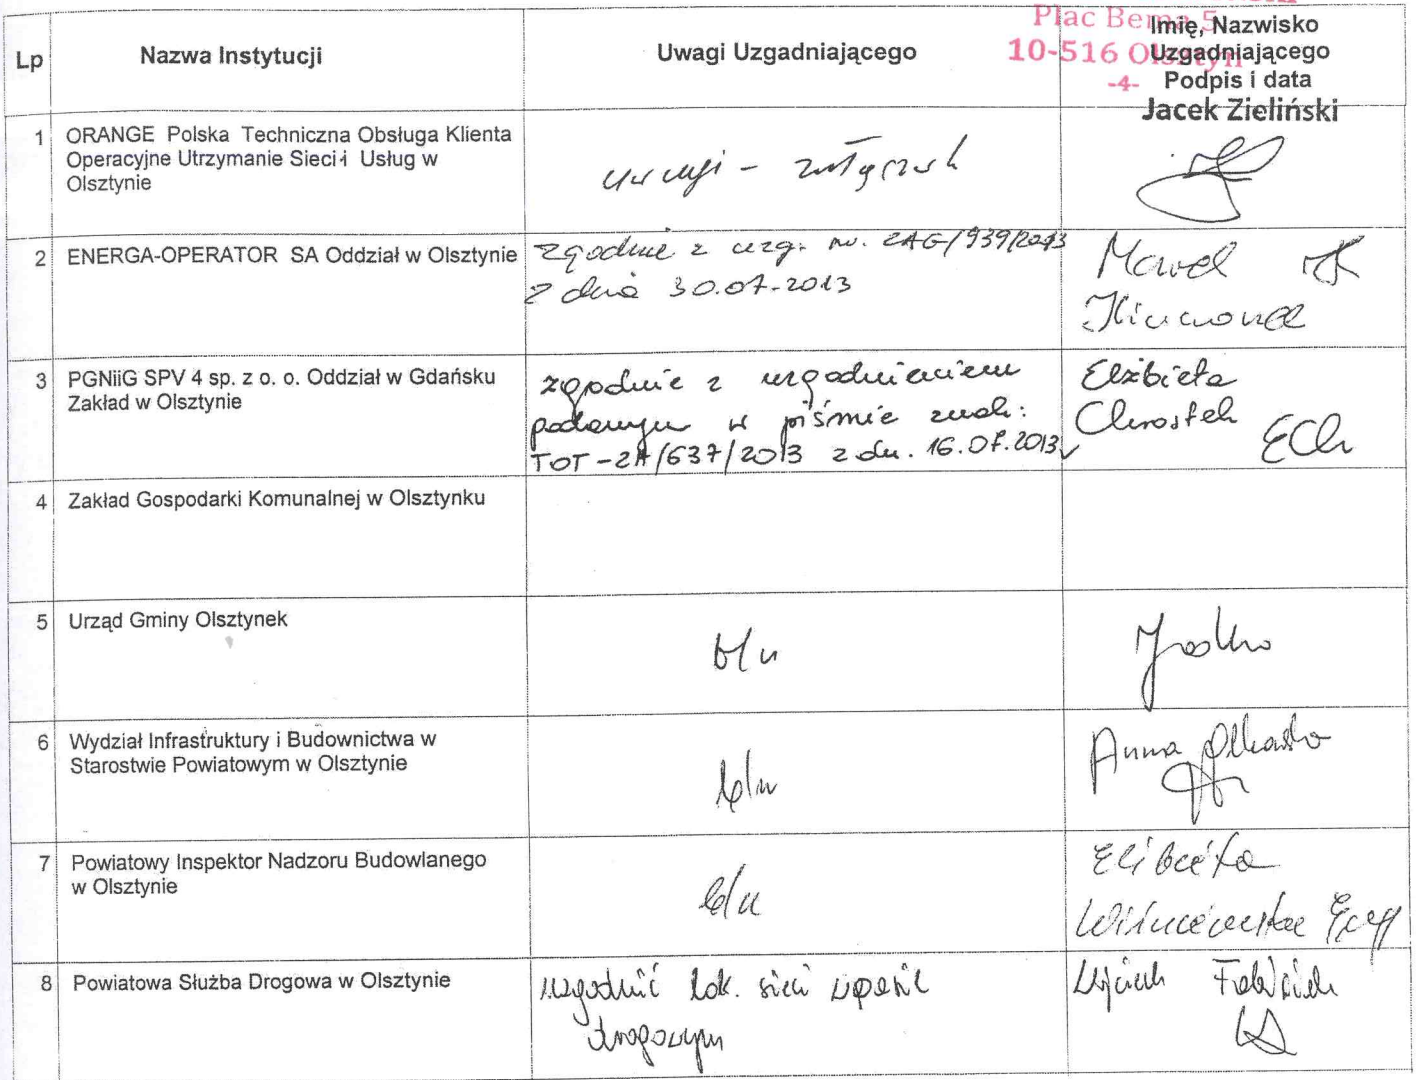 Plac Bema 5
10-516 Olsztyn
-4-
Lp
Nazwa Instytucji
Uwagi Uzgadniającego
Imię, Nazwisko
Uzgadniającego
Podpis i data
Jacek Zieliński
1
ORANGE Polska Techniczna Obsługa Klienta
Operacyjne Utrzymanie Sieci i Usług w
Olsztynie
uwagi -
2
ENERGA-OPERATOR SA Oddział w Olsztynie
zgodnie z uzg. nr. ZAG/939/2013
z dnia 30.07.2013
3
PGNiiG SPV 4 sp. z o. o. Oddział w Gdańsku
Zakład w Olsztynie
zgodnie z uzgodnieniem
podanym w piśmie znak:
TOT-ZA/637/2013 z dn. 16.07.2013
Elżbieta
Chrostek
ECh
4
Zakład Gospodarki Komunalnej w Olsztynku
5
Urząd Gminy Olsztynek
b/u
6
Wydział Infrastruktury i Budownictwa w
Starostwie Powiatowym w Olsztynie
b/u
Anna
7
Powiatowy Inspektor Nadzoru Budowlanego
w Olsztynie
b/u
Elżbieta
8
Powiatowa Służba Drogowa w Olsztynie
uzgodnić lok. sieci w pasie
drogowym